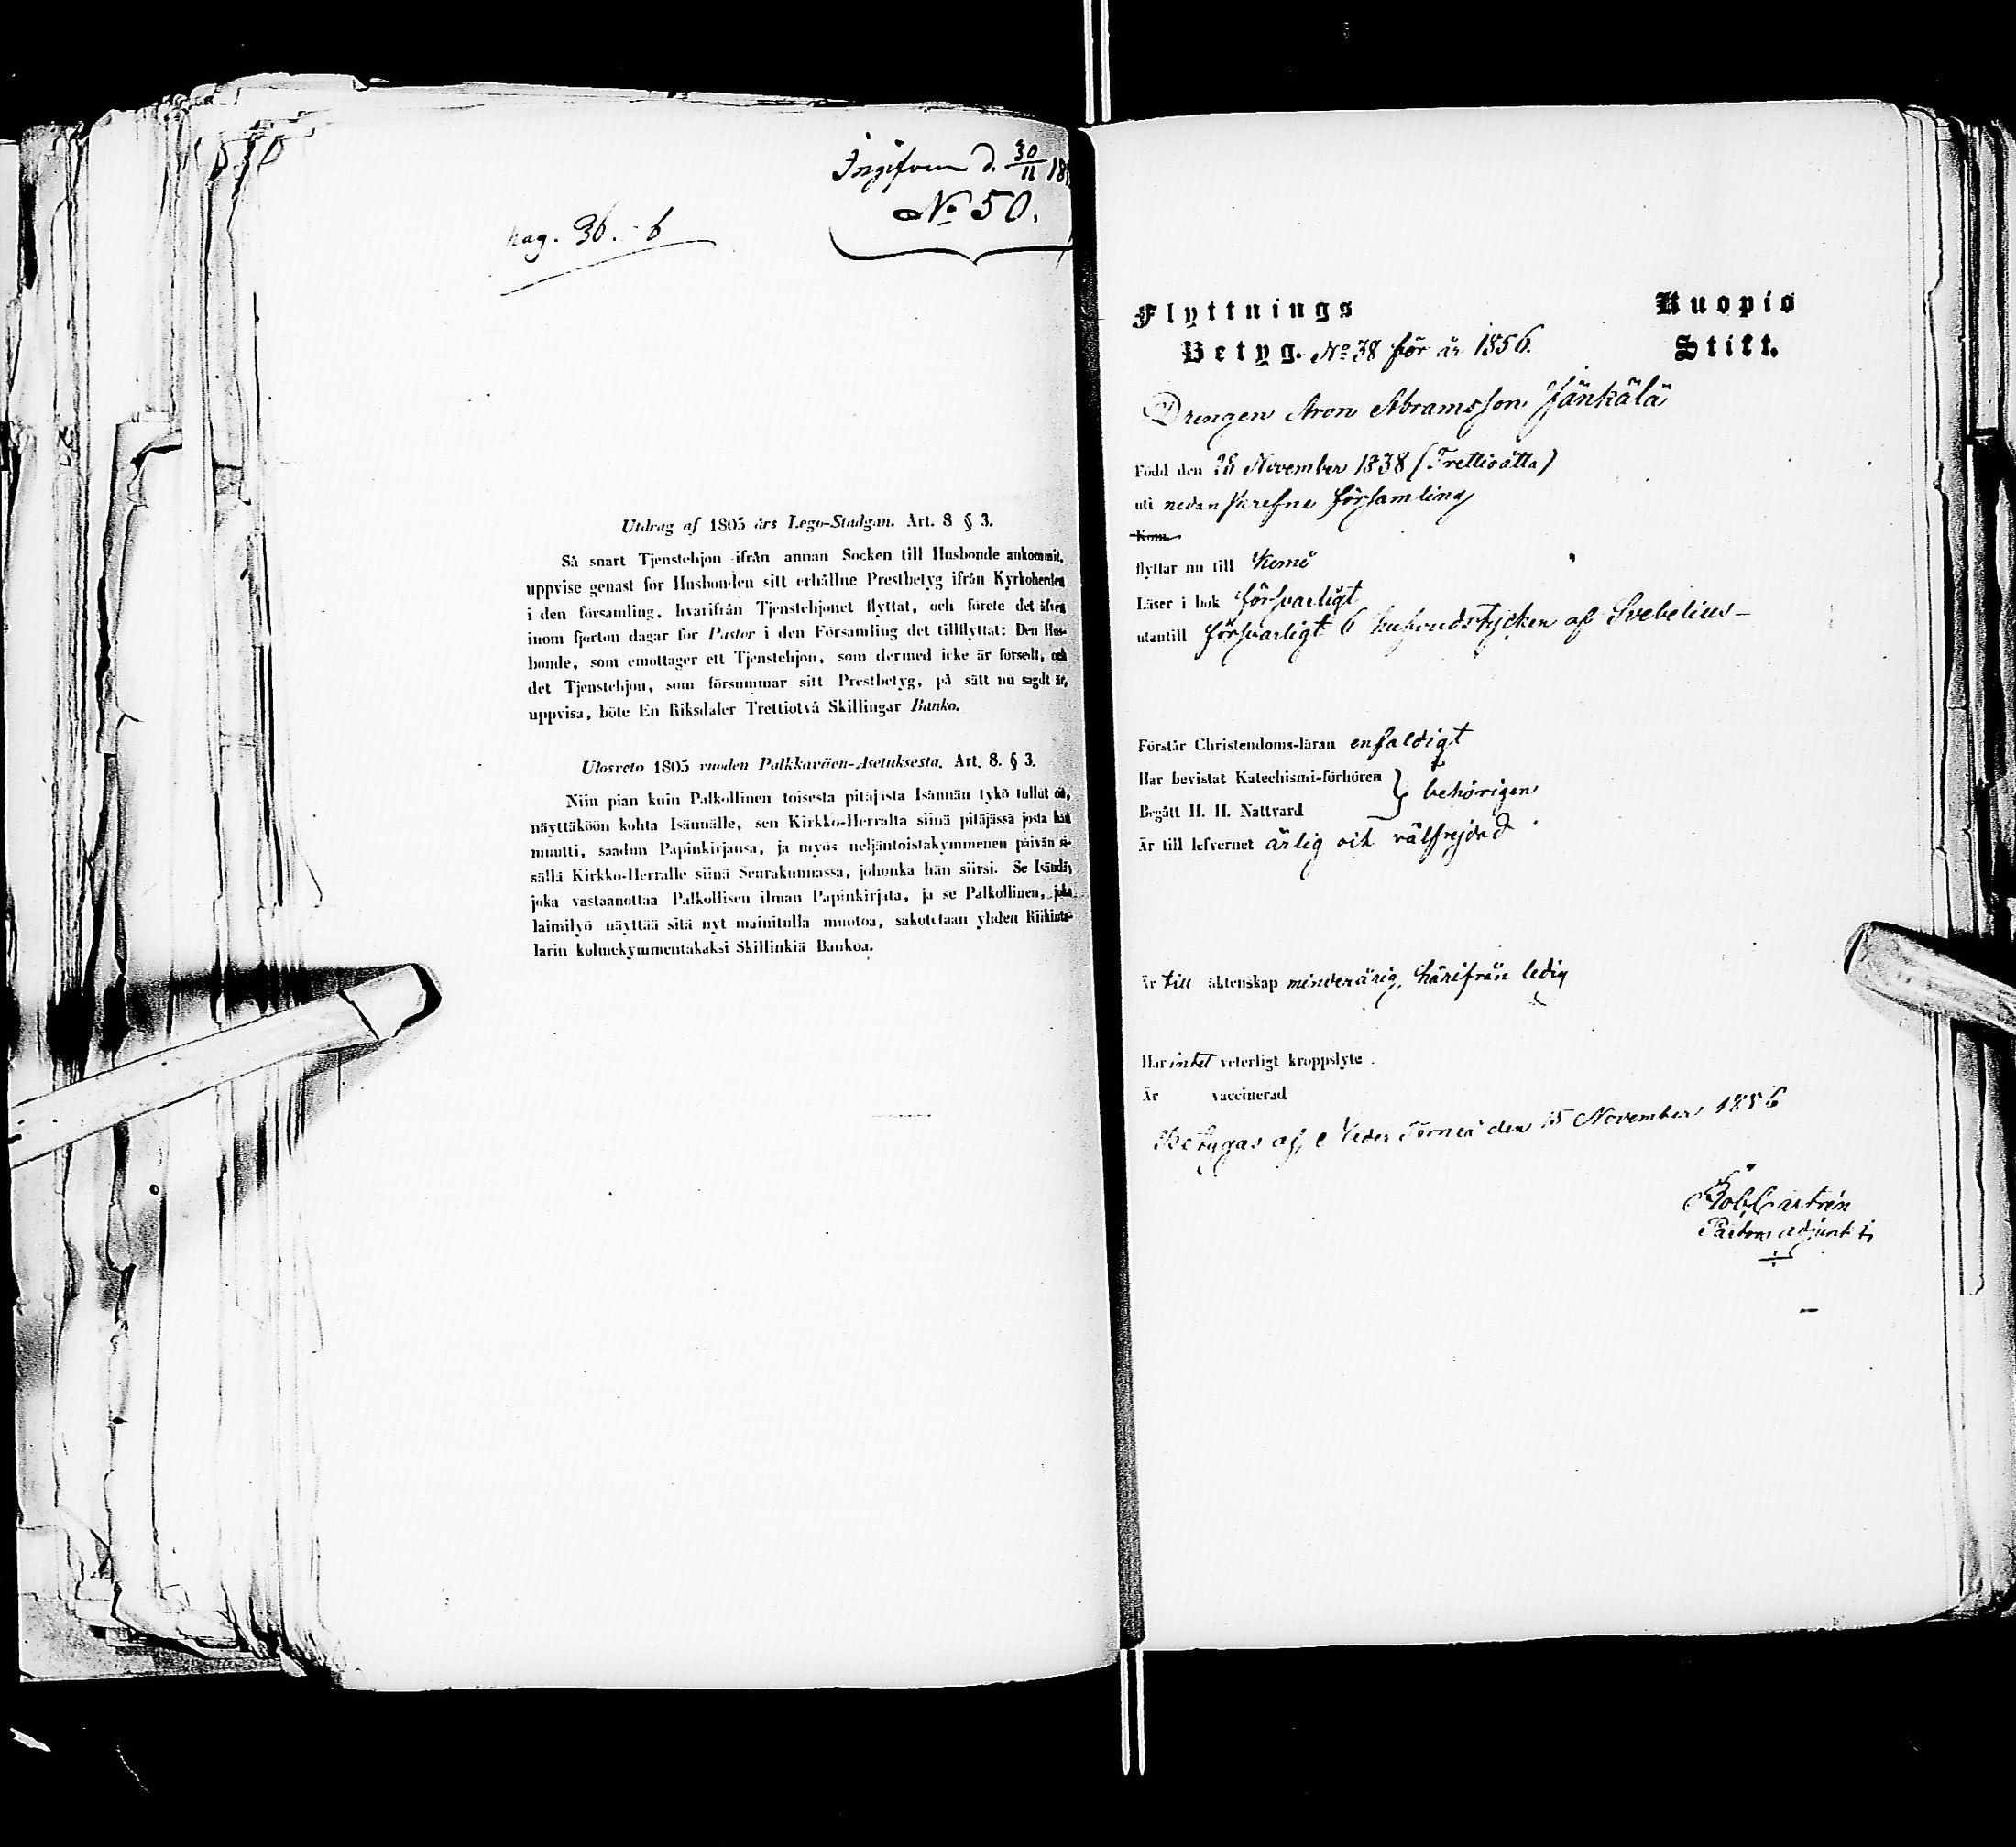 Ingifven d. 30/11 18
No 50.
pag. 36. b
Utdrag af 1805 års Lego-Stadgan. Art. 8 § 3.
Så snart Tjenstehjon ifrån annan Socken till Husbonde ankommit,
uppvise genast för Husbonden sitt erhållne Prestbetyg ifrån Kyrkoherden
i den församling, hvarifrån Tjenstehjonet flyttat, och förete det äfven
inom fjorton dagar för Pastor i den Församling det tillflyttat: Den Hus-
bonde, som emottager ett Tjenstehjon, som dermed icke är försedt, och
det Tjenstehjon, som försummar sitt Prestbetyg, på sätt nu sagdt är,
uppvisa, böte En Riksdaler Trettiotvå Skillingar Banko.
Ulosveto 1805 vuoden Palkkaväen-Asetuksesta. Art. 8. § 3.
Niin pian kuin Palkollinen toisesta pitäjästa Isännän tykö tullut on,
näyttäköön kohta Isännälle, sen Kirkko-Herralta siinä pitäjässä josta hän
muutti, saadun Papinkirjansa, ja myös neljäntoistakymmenen päivän si-
sällä Kirkko-Herralle siinä Seurakunnassa, johonka hän siirsi. Se Isändä,
joka vastaanottaa Palkollisen ilman Papinkirjata, ja se Palkollinen, joka
laimilyö näyttää sitä nyt mainitulla muotoa, sakotetaan yhden Riikinta-
larin kolmekymmentäkaksi Skillinkiä Bankoa.
Flyttnings
Betyg. No 38 för år 1856.
Kuopio
Stift.
Drengen Aron Abramsson Jänkälä
Född den 28 November 1838 (Trettioåtta)
uti nedanskrefne församling
Kom
flyttar nu till Kemi
Läser i bok försvarligt
utantill försvarligt 6 hufvudstycken af Svebelius—
Förstår Christendoms-läran enfaldigt
Har bevistat Katechismi-förhören
Begått H. H. Nattvard } behörigen
Är till lefvernet ärlig och välfrejdad
Är till äktenskap minderårig, härifrån ledig
Har intet veterligt kroppslyte.
Är vaccinerad
Betygas af, Neder Torneå den 15 November 1856
Rob Castrén
Pastors adjunkt